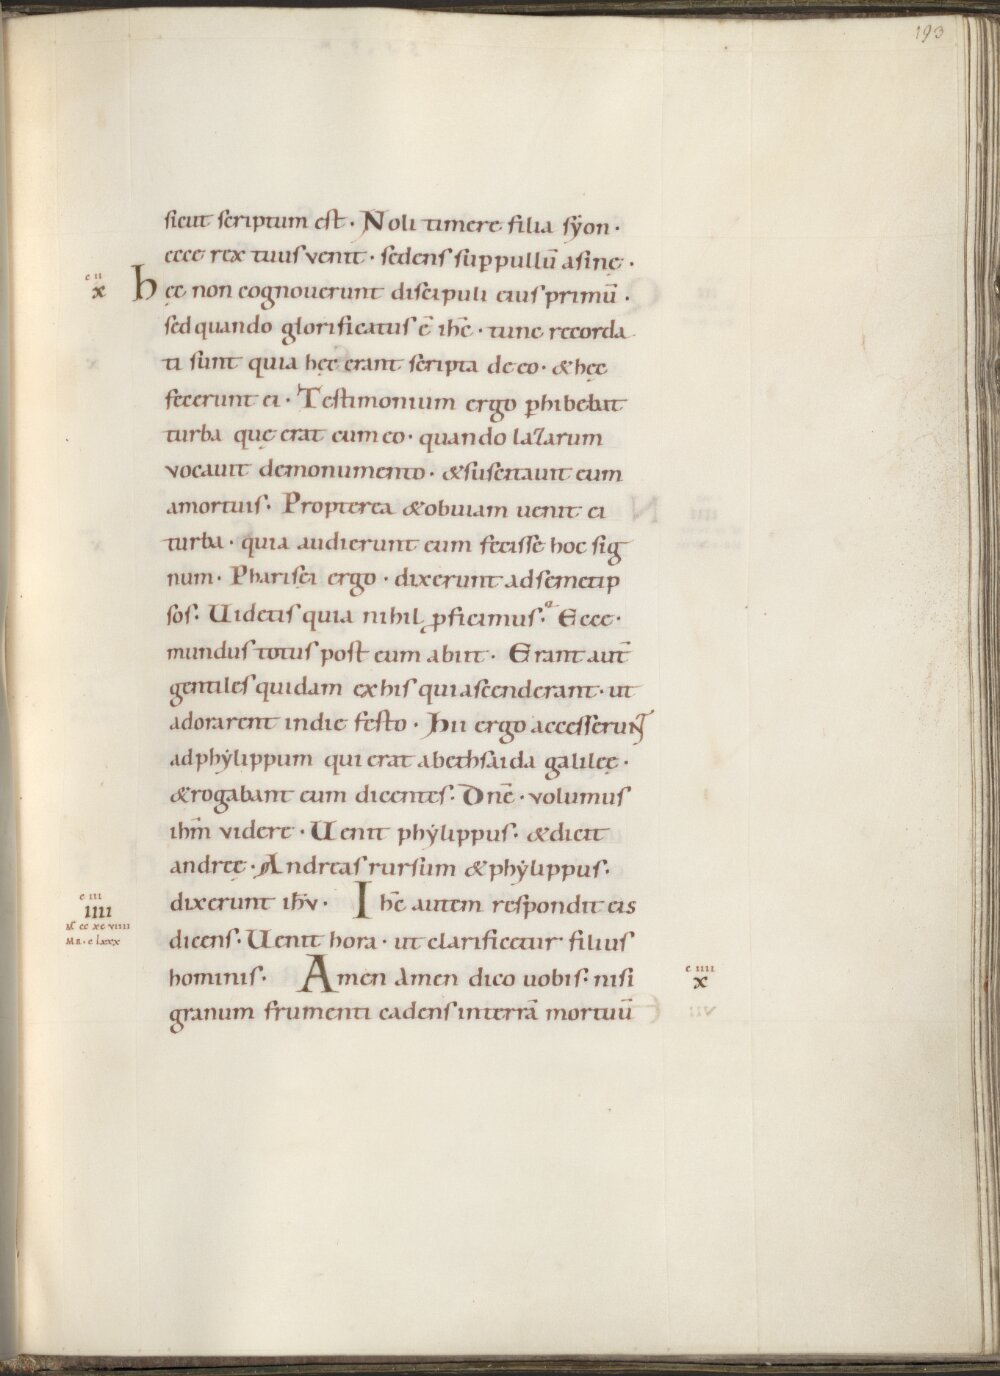 193
sicut scriptum est · Noli timere filia syon ·
ecce rex tuus venit · sedens sup pullū asinę ·
c ii
x
hęc non cognouerunt discipuli eius primū ·
sed quando glorificatus ē ihc̄ · tunc recorda
ti sunt quia hęc erant scripta de eo · & hęc
fecerunt ei · Testimonium ergo p̱hibebat
turba quę erat cum eo · quando lazarum
vocauit de monumento · & suscitauit eum
a mortuis · Propterea & obuiam uenit ei
turba · quia audierunt eum fecisse hoc sig
num · Pharisęi ergo · dixerunt ad semetip
sos · Uidetis quia nihil ꝓficimus · Ecce ·
mundus totus post eum abiit · Erant aut̄
gentiles quidam ex his qui ascenderant · ut
adorarent in die festo · Hii ergo accesserunt
ad phẏlippum qui erat a bethsaida galileę ·
& rogabant eum dicentes · Dn̄e · volumus
ihm̄ videre · Uenit phẏlippus · & dicit
andreę · Andreas rursum & phẏlippus ·
dixerunt ih̄v · Ihc̄ autem respondit eis
c iii
IIII
M̄ cc xc viiii
MR · c lxxx
dicens · Uenit hora · ut clarificetur filius
hominis · Amen amen dico uobis · nisi
c iiii
x
granum frumenti cadens in terrā mortuū